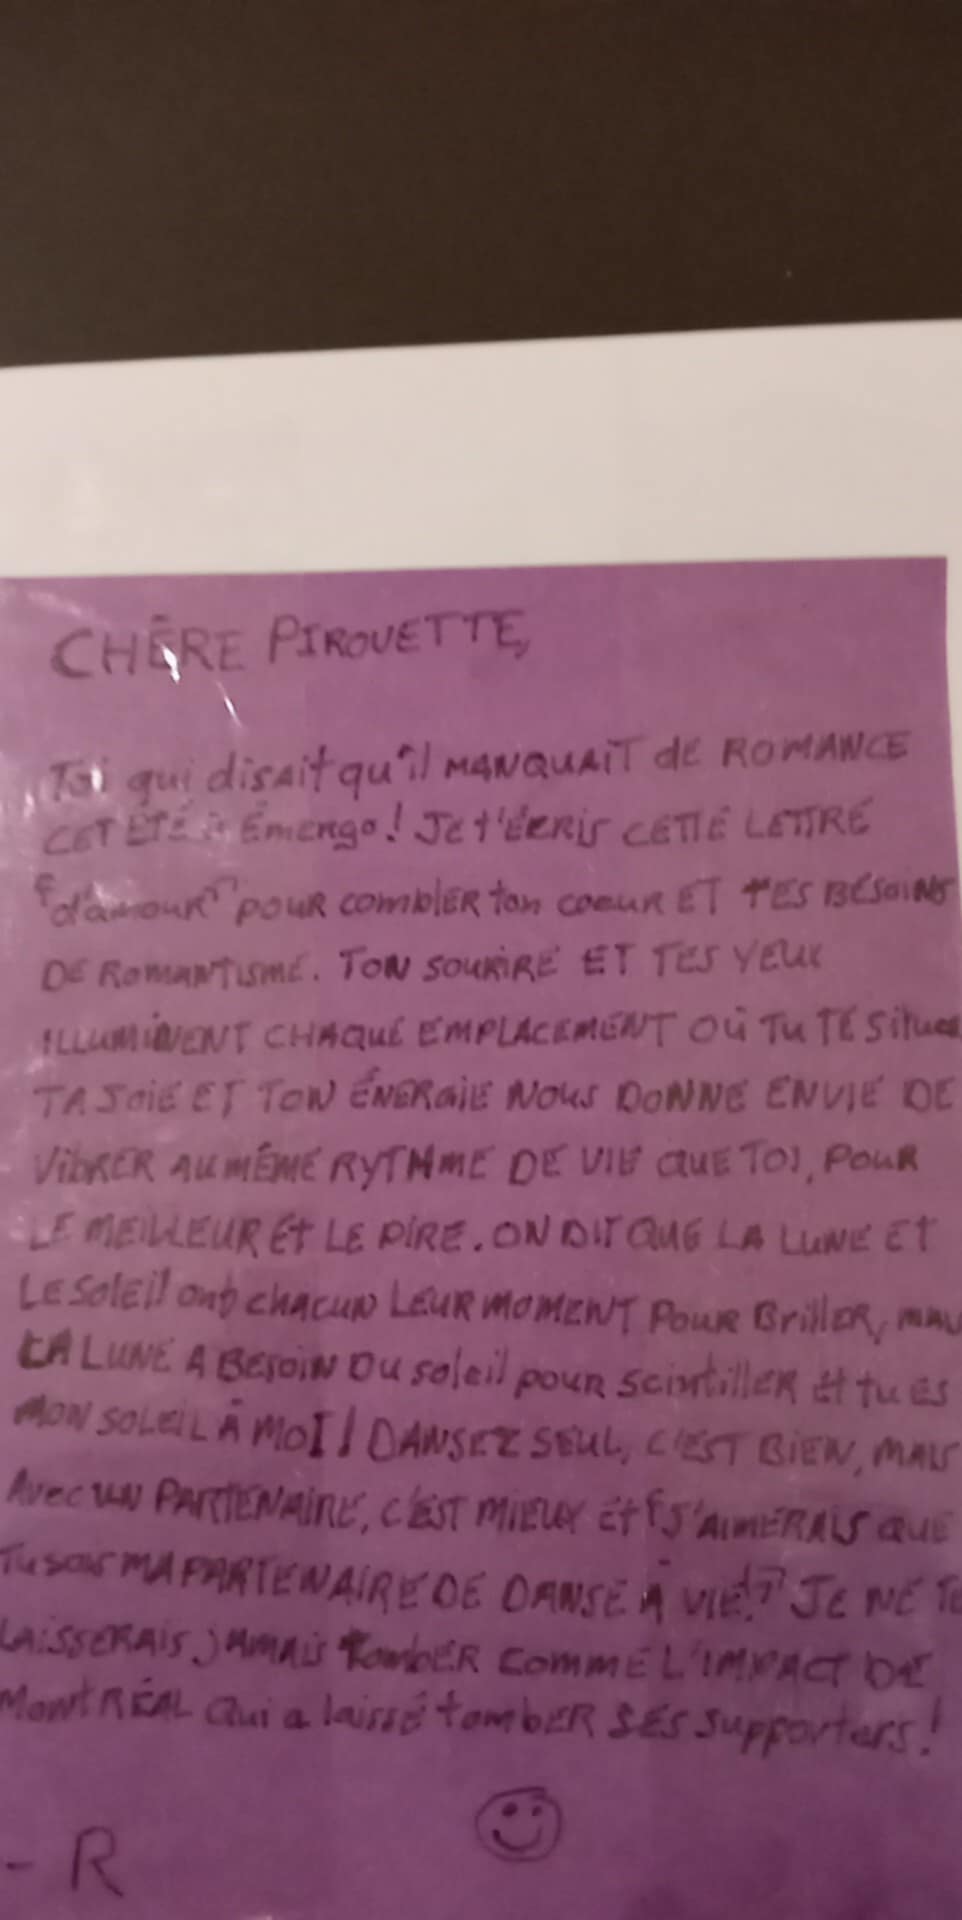 CHÈRE PIROUETTE,
Toi qui disait qu'il MANQUAIT de ROMANCE
CET ÉTÉ à Émergo! Je t'ÉCRIS CETTE LETTRE
"d'amour" pour combler ton coeur ET TES BESOINS
DE ROMANTISME. TON SOURIRE ET TES YEUX
ILLUMINENT CHAQUE EMPLACEMENT OÙ TU TE Situes
TA JOIE ET TON ÉNERGIE NOUS DONNE ENVIE DE
VIBRER AU MÊME RYTHME DE VIE QUE TOI, POUR
LE MEILLEUR Et LE PIRE. ON DIT QUE LA LUNE ET
LE SOLEIL ont chacun LEUR MOMENT POUR BRILLER, MAIS
LA LUNE A BESOIN DU soleil pour scintiller et tu es
MON SOLEIL À MOI! DANSEZ SEUL, C'EST BIEN, MAIS
Avec un PARTENAIRE, C'EST MIEUX Et "J'AIMERAIS QUE
Tu sois MA PARTENAIRE DE DANSE À VIE!" JE NE TE
LAISSERAIS JAMAIS tomber COMME L'IMPACT DE
MONTRÉAL Qui a laissé tomber SES supporters!
- R